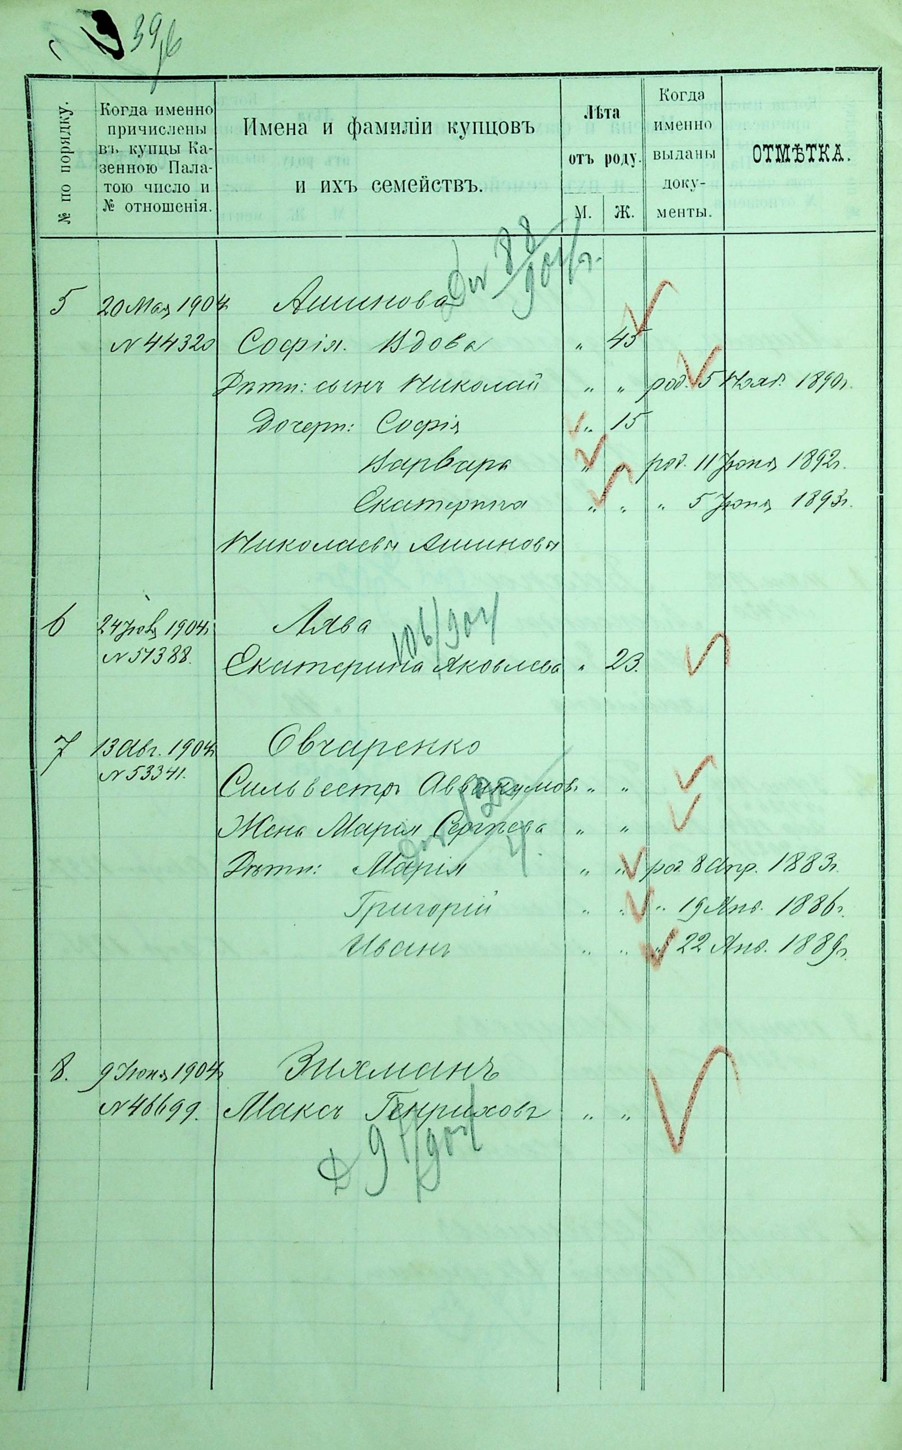 39
№ по порядку.
Когда именно
причислены
въ купцы Ка-
зенною Пала-
тою число и
№ отношенія.
Имена и фамиліи купцовъ
и ихъ семействъ.
Лѣта
отъ роду.
М. Ж.
Когда
именно
выданы
доку-
менты.
ОТМѢТКА.
88/904 г.
5 20 Мая 1904 г. Ашинова
№ 44320 Софія. Вдова „ 45
Дѣти: сынъ Николай „ „ род. 5 Нояб. 1890 г.
Дочери: Софія „ 15
Варвара „ „ род. 11 Іюня 1892 г.
Екатерина „ „ „ 5 Іюня 1893 г.
Николаевы Ашиновы
6 1904 г. Лява
106/904
№ 51388. Екатерина Яковлева „ 23.
7 13 Авг. 1904 г. Овчаренко
№ 53341. Сильвестръ Аввакумов. „ „
Жена Марія Сергѣева „ „
120/4.
Дѣти: Марія „ „ род. 8 Апр. 1883 г.
Григорій „ „ „ 19 Янв. 1886 г.
Иванъ „ „ „ 22 Янв. 1889 г.
8. 9 Іюня 1904 г. Зихманъ
№ 46699. Максъ Генриховъ „ „
Д 94/904